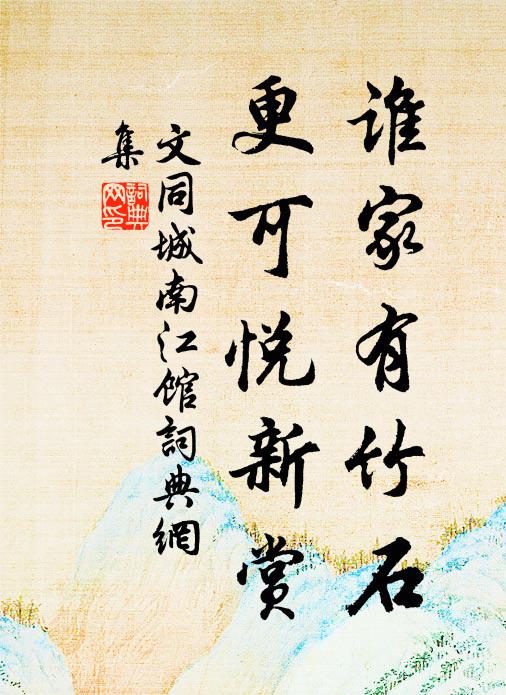 谁家有竹石
更可悦新赏
文同城南江馆詞典網
集
詞典
网印